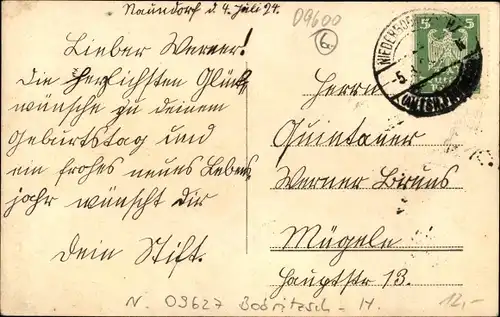 Naundorf d. 4. Juli 24.
09600
6
Lieber Werner!
Die herzlichsten Glück-
wünsche zu deinem
Geburtstag und
ein frohes neues Lebens-
jahr wünscht dir
Dein Stift.
5 5
NIEDERBOB
Herrn
Quintaner
Werner Bruns
Mügeln
Hauptstr 13.
N. 09627 Bobritzsch - H. 12,-